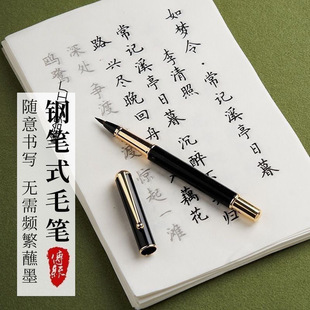 如梦令·常记溪亭日暮
李清照
常记溪亭日暮 沉醉不知归
路 兴尽晚回舟 误入藕花
深处 争渡 惊起一滩
鸥鹭
钢笔式毛笔
随意书写 无需频繁蘸墨